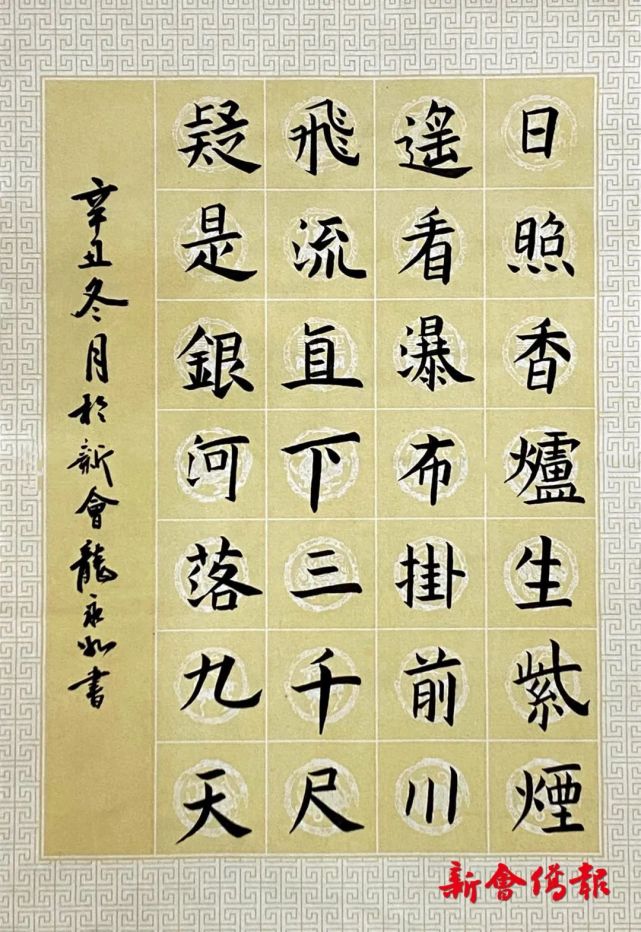 日照香爐生紫煙
遙看瀑布掛前川
飛流直下三千尺
疑是銀河落九天
辛丑冬月於新會龍永如書
新會僑報